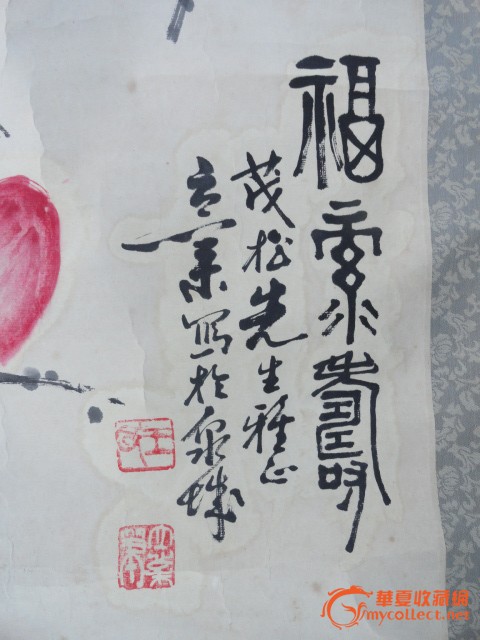 福彔壽
茂松先生雅正
立業寫於泉城
華夏收藏網
mycollect.com